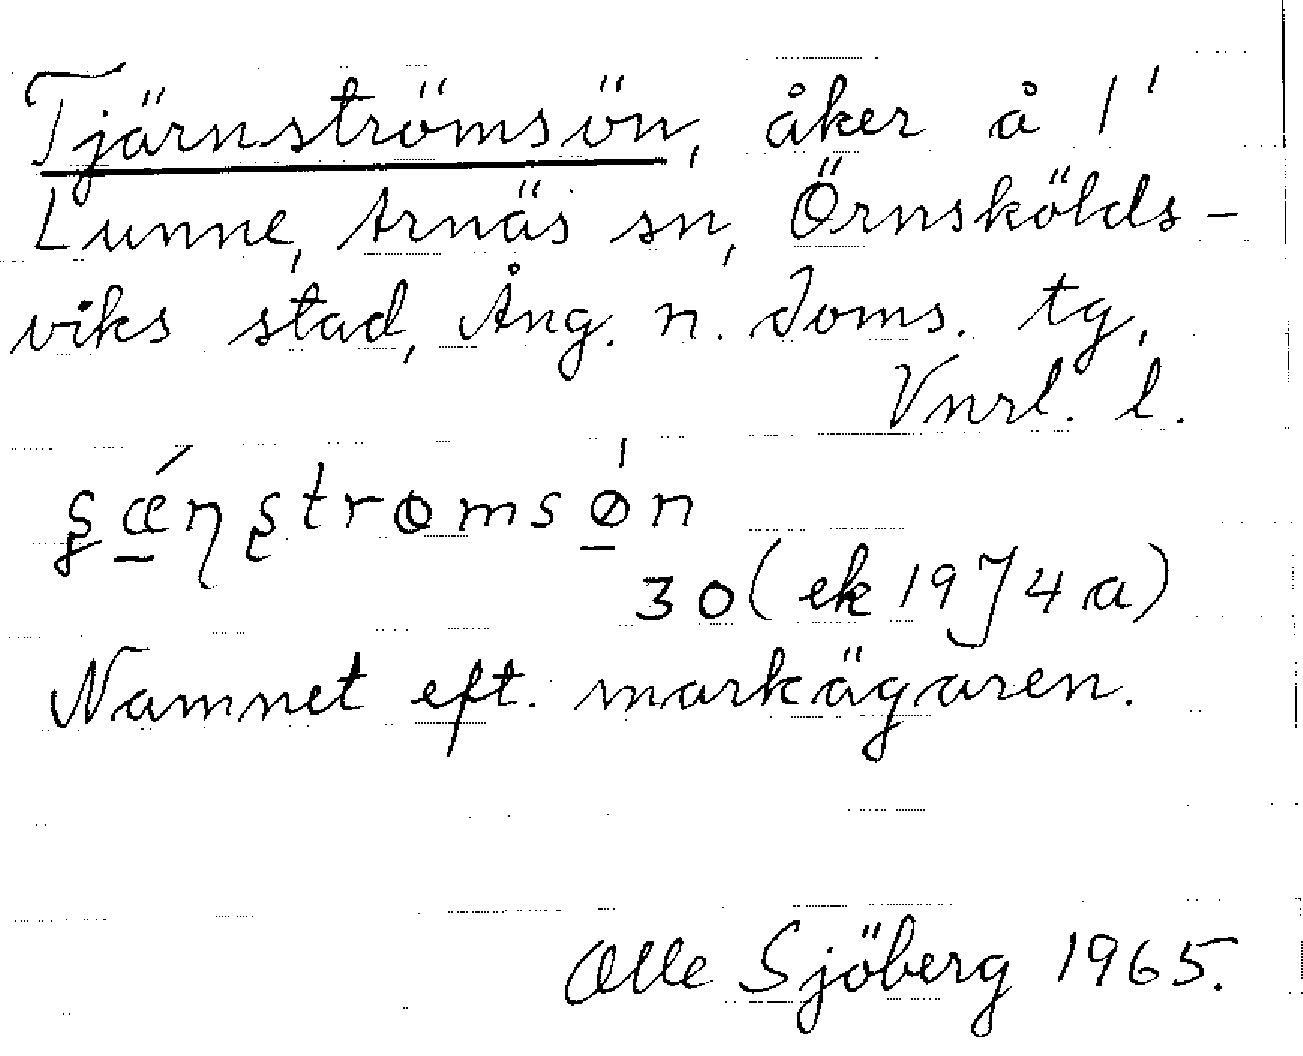 Tjärnströmsön, åker å 1'
Lunne, Arnäs sn, Örnskölds-
viks stad, Ång. n. doms. tg,
Vnrl. l.
30 (ek 19J4a)
Namnet eft. markägaren.
Olle Sjöberg 1965.